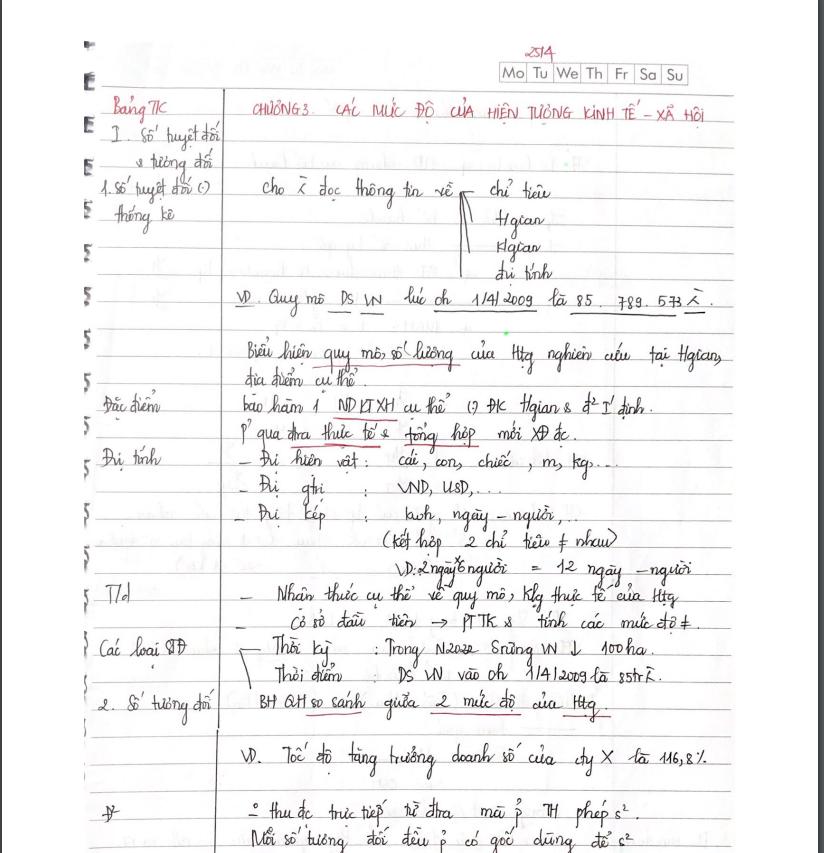 25/4
Mo Tu We Th Fr Sa Su
Bảng TK
CHƯƠNG 3. CÁC MỨC ĐỘ CỦA HIỆN TƯỢNG KINH TẾ - XÃ HỘI
I. Số tuyệt đối
& tương đối
1. Số tuyệt đối (.)
thống kê
cho đọc thông tin về chỉ tiêu
t/gian
k/gian
đvị tính
VD. Quy mô DS VN lúc 0h 1/4/2009 là 85. 789. 573
Biểu hiện quy mô, số lượng của Htg nghiên cứu tại t/gian,
địa điểm cụ thể.
Đặc điểm
bao hàm 1 ND KTXH cụ thể (.) ĐK t/gian & đ² I' định.
P' qua đtra thực tế & tổng hợp mới XĐ đc.
Đvị tính
- Đvị hiện vật : cái, con, chiếc, m, kg,...
- Đvị gtri : VND, USD,...
- Đvị kép : kwh, ngày - người,..
(kết hợp 2 chỉ tiêu ≠ nhau)
VD: 2 ngày * 6 người = 12 ngày - người
T/d
- Nhận thức cụ thể về quy mô, klg thực tế của Htg
- Cơ sở đầu tiên → PT TK & tính các mức độ ≠.
Các loại STĐ
Thời kỳ : Trong N2022 Srừng VN ↓ 100ha.
Thời điểm : DS VN vào 0h 1/4/2009 là 85tr
2. Số tương đối
BH QH so sánh giữa 2 mức độ của Htg.
VD. Tốc độ tăng trưởng doanh số của cty X là 116,8%
Đ²
thu đc trực tiếp từ đtra mà p' TH phép s².
Mỗi số tương đối đều p' có gốc dùng để s²